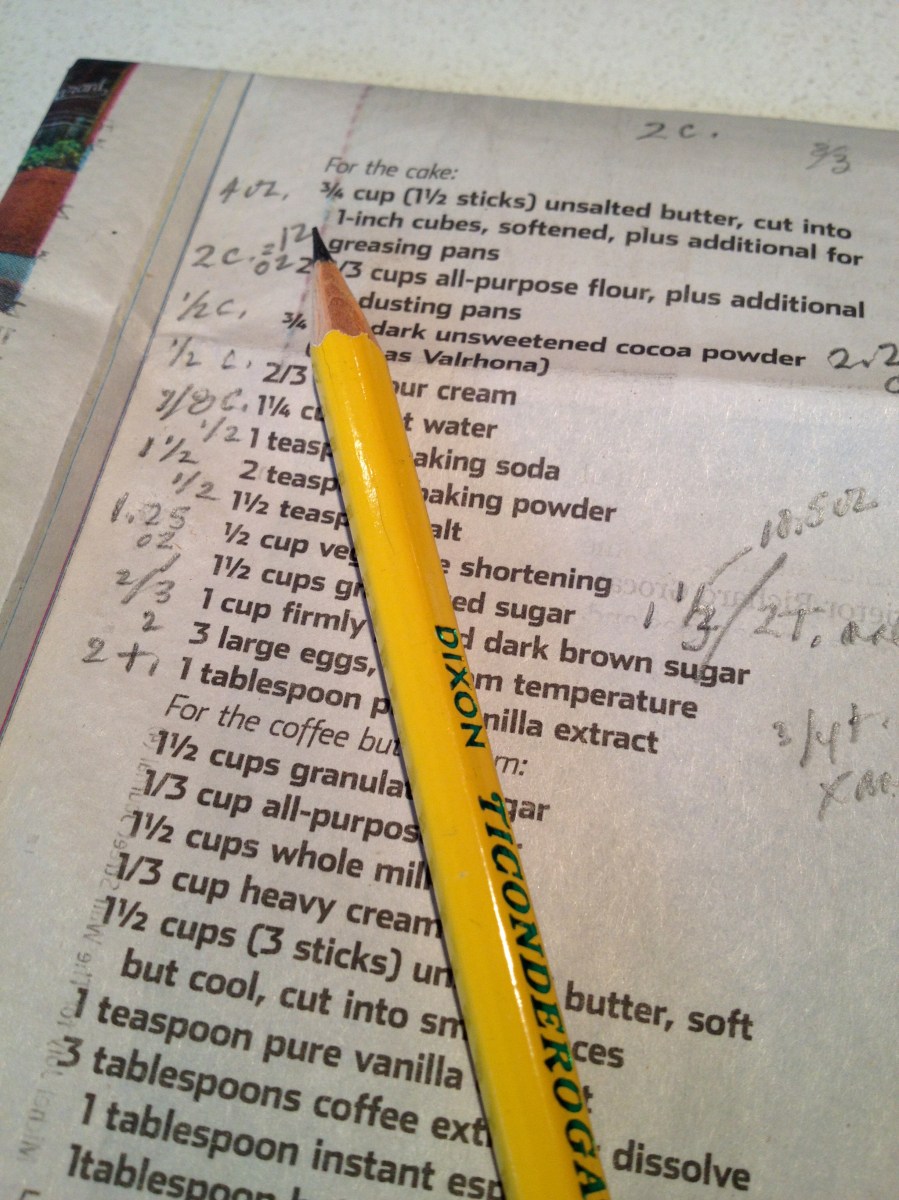 2 c.
2/3
For the cake:
4 oz. ¾ cup (1½ sticks) unsalted butter, cut into
1-inch cubes, softened, plus additional for
=12 greasing pans
2 c. oz 2 1/3 cups all-purpose flour, plus additional
dusting pans
½ c. ¾ dark unsweetened cocoa powder 2.2
as Valrhona)
½ c. 2/3 our cream
7/8 c. 1¼ t water
½ 1 teasp aking soda
1½ 2 teasp baking powder
½ 1½ teasp alt
1.25 oz ½ cup ve e shortening
1½ cups gr ed sugar
18.5 oz
2/3 1 cup firmly d dark brown sugar
1 ½ / 2 T.
2 3 large eggs, om temperature
2 t. 1 tablespoon p nilla extract
3/4 t.
For the coffee but m:
1½ cups granula gar
1/3 cup all-purpos
1½ cups whole mil
1/3 cup heavy cream
1½ cups (3 sticks) un butter, soft
but cool, cut into sm ces
1 teaspoon pure vanilla t
3 tablespoons coffee ext dissolve
1 tablespoon instant esp
1tablespoon
DIXON TICONDEROGA